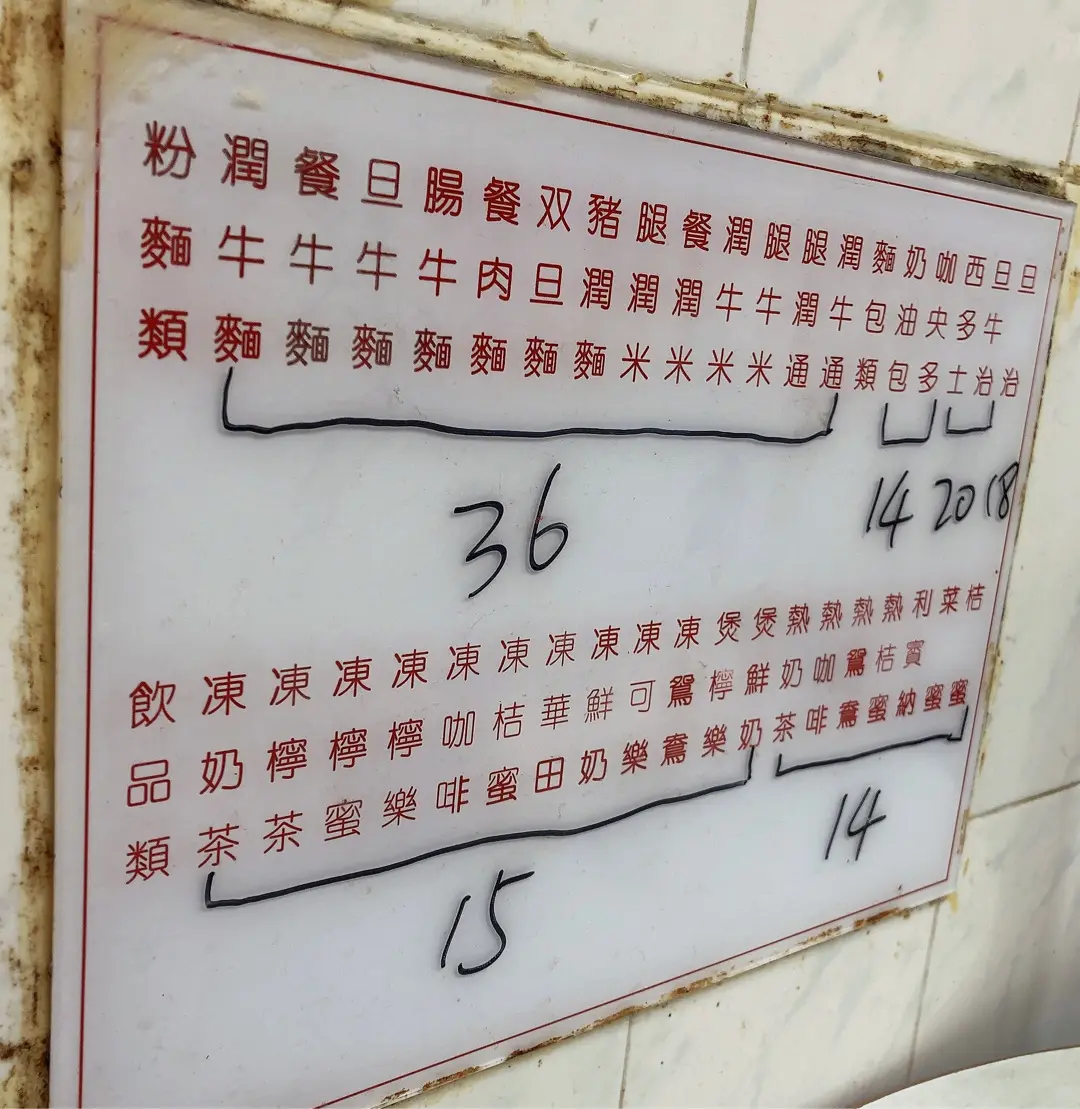 粉麵類
潤牛麵
餐牛麵
旦牛麵
腸牛麵
餐肉麵
双旦麵
豬潤麵
腿潤米
餐潤米
潤牛米
腿牛米
腿潤通
潤牛通
36
麵包類
奶油包
咖央多
14
西多士
旦牛治
20
旦治
18
飲品類
凍奶茶
凍檸茶
凍檸蜜
凍檸樂
凍咖啡
凍桔蜜
凍華田
凍鮮奶
凍可樂
凍鴛鴦
煲檸樂
煲鮮奶
15
熱奶茶
熱咖啡
熱鴛鴦
熱桔蜜
利賓納
菜蜜
桔蜜
14